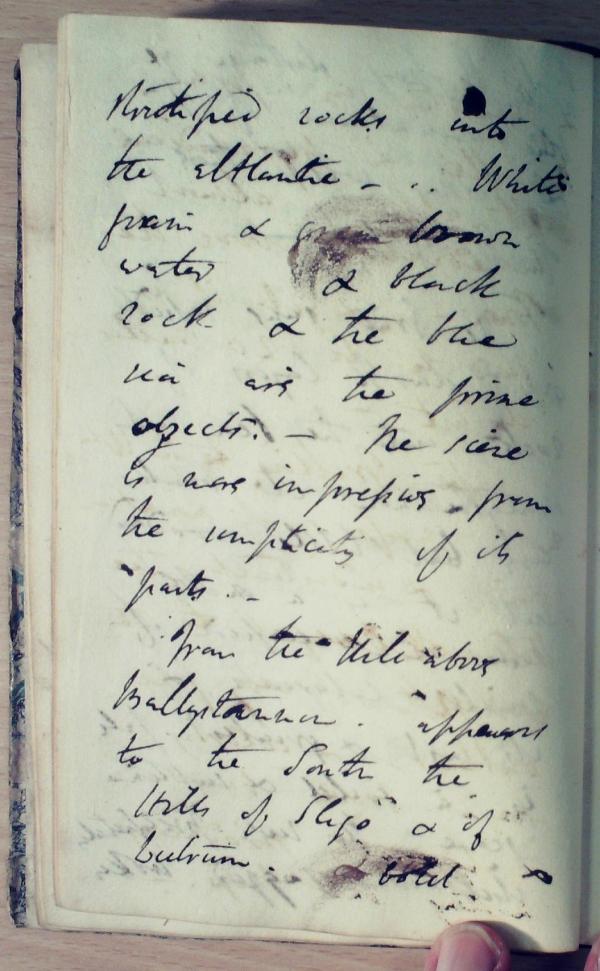 stratified rocks into
the altlantic - .. White
foam & green brown
water & black
rock & the blue
sea are the prime
objects. - The scene
is more impressive from
the simplicity of its
parts. -
From the Hill above
Ballyshannon. appears
to the South the
Hills of Sligo & of
Leitrim. & bold